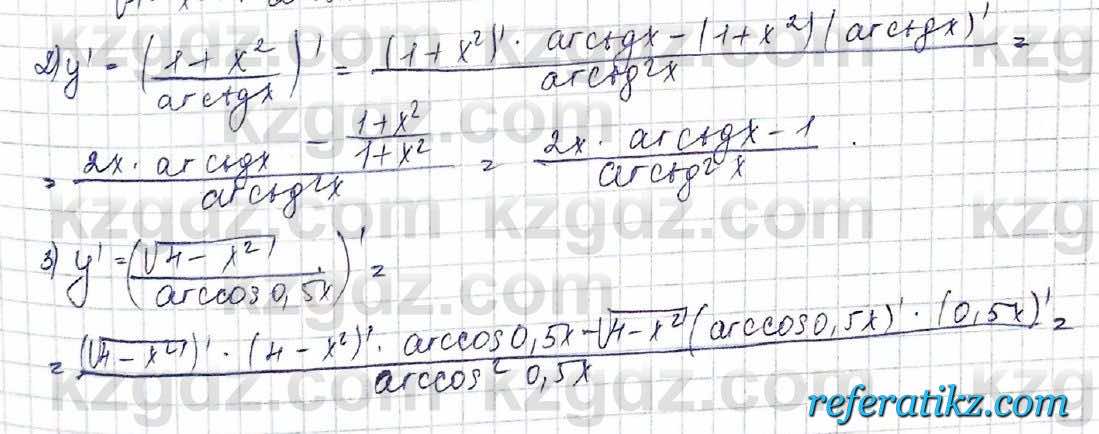 2) y' = ((1+x²)/(arctgx))' = ((1+x²)' · arctgx - (1+x²)(arctgx)')/(arctg²x) =
= (2x · arctgx - (1+x²)/(1+x²))/(arctg²x) = (2x · arctgx - 1)/(arctg²x) .
3) y' = ((√4-x²)/(arccos0,5x))' =
= ((√4-x²)' · (4-x²)' · arccos0,5x - √4-x² (arccos0,5x)' · (0,5x)')/(arccos² 0,5x) =
kzgdz.com kzgdz.com kzgdz.com
referatikz.com